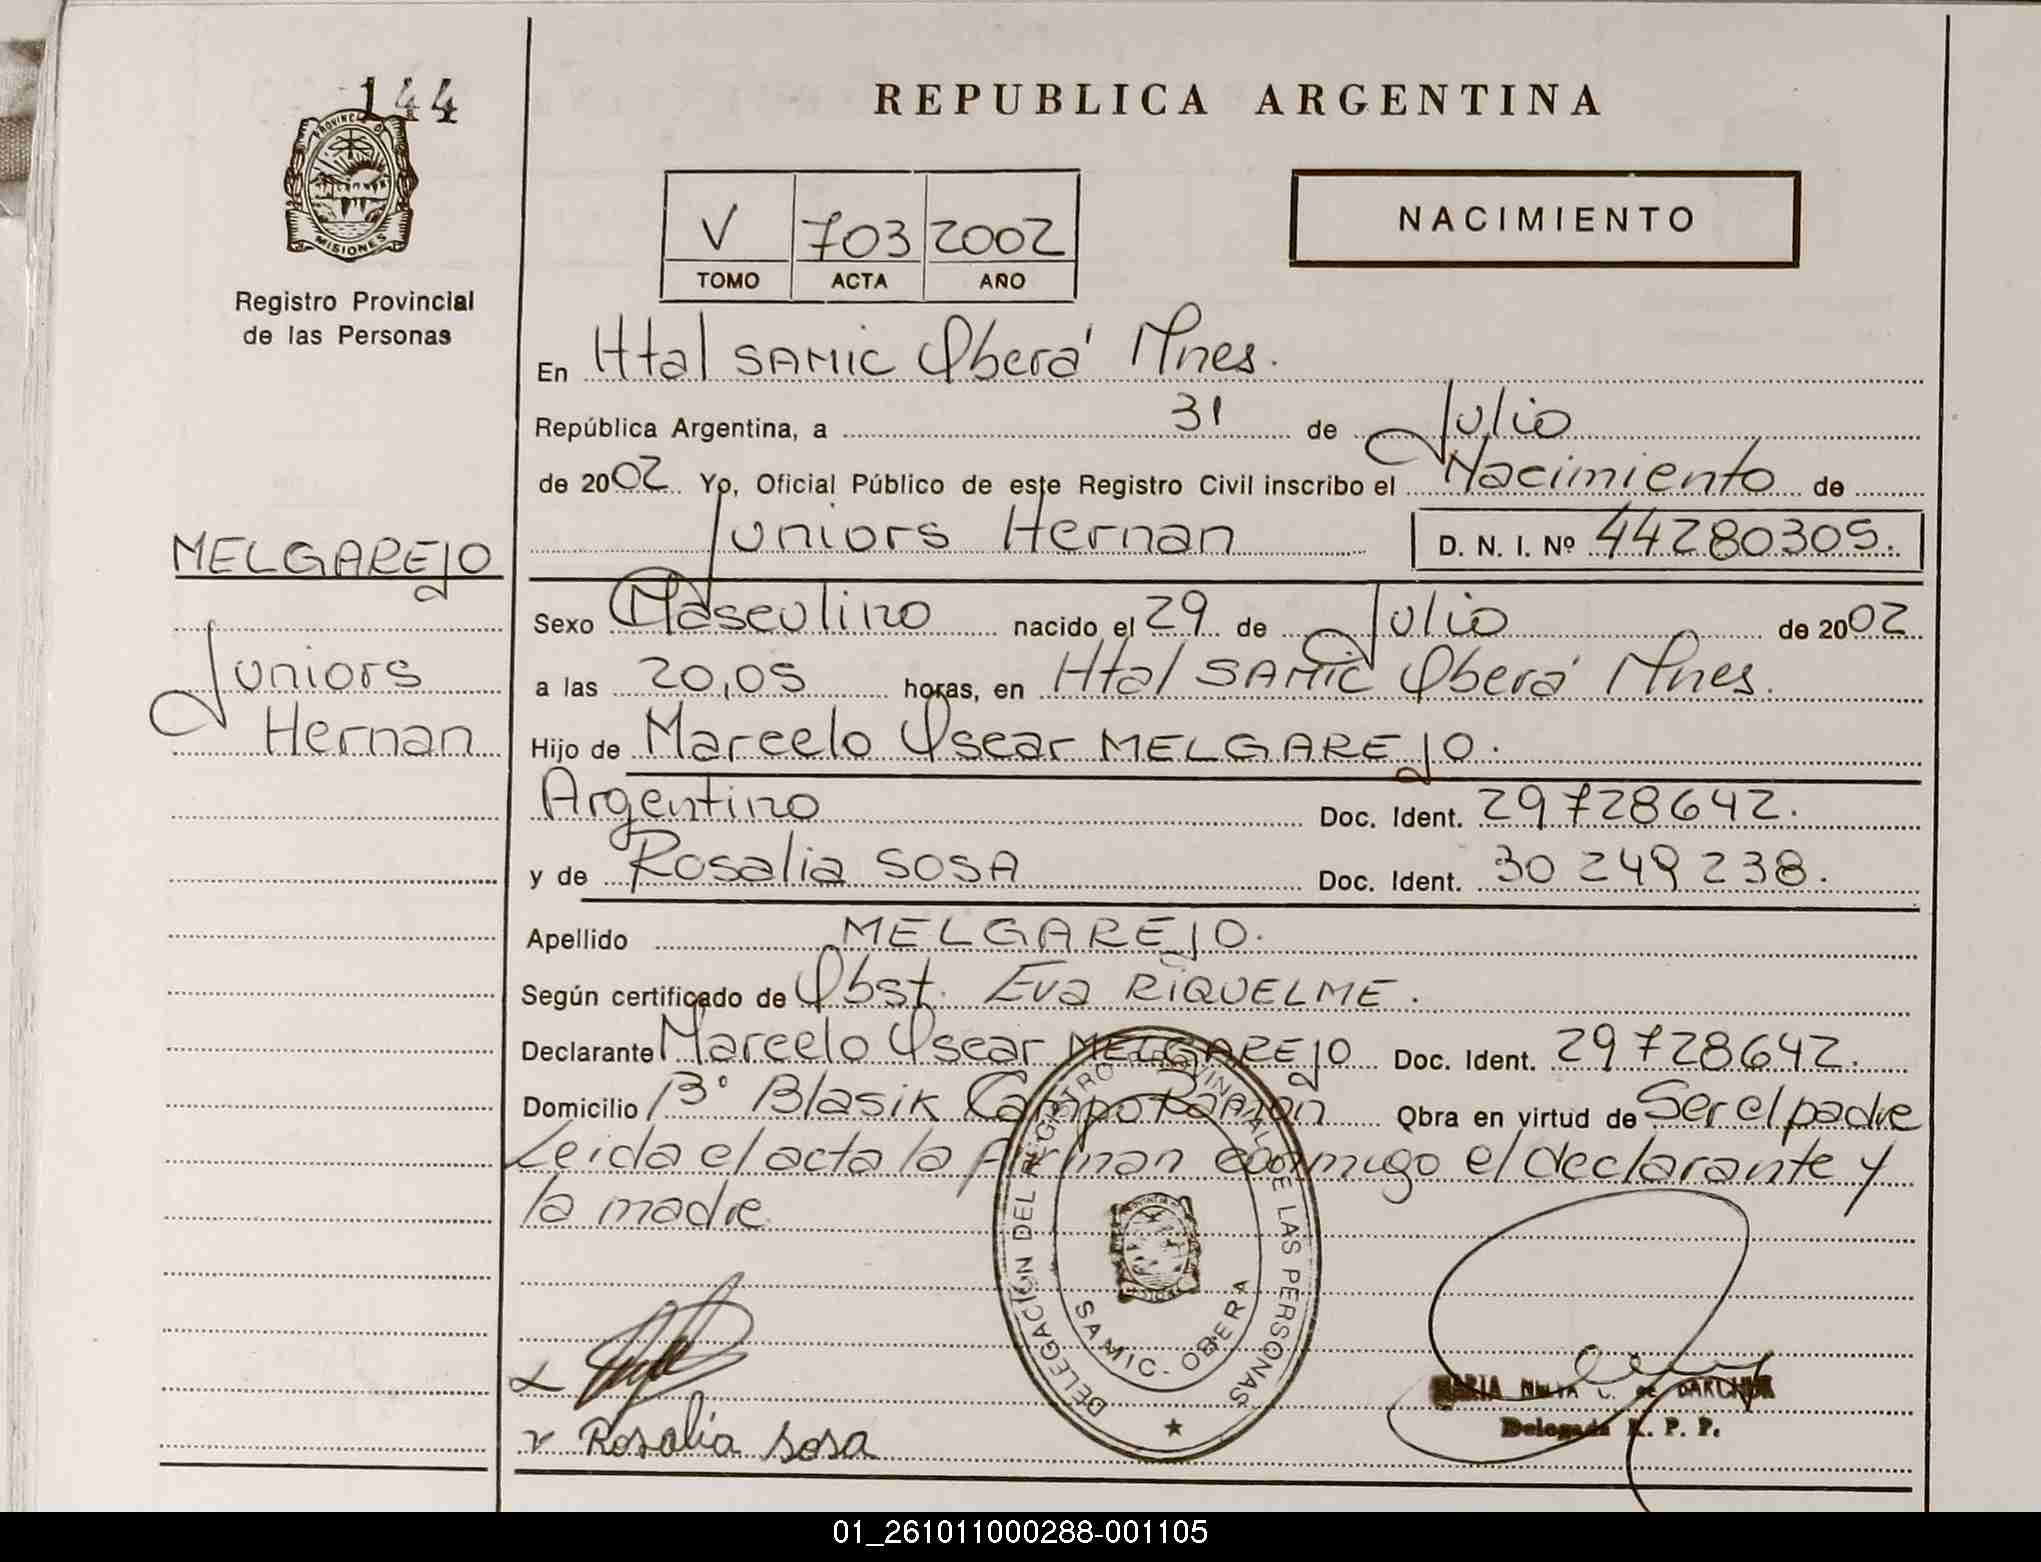 144
PROVINCIA DE
MISIONES
Registro Provincial
de las Personas
REPUBLICA ARGENTINA
V 703 2002
TOMO ACTA AÑO
NACIMIENTO
En Htal SAMIC Oberá Mnes.
República Argentina, a 31 de Julio
de 2002 Yo, Oficial Público de este Registro Civil inscribo el Nacimiento de
Juniors Hernan D. N. I. Nº 44280305.
MELGAREJO
Juniors
Hernan
Sexo Masculino nacido el 29 de Julio de 2002
a las 20,05 horas, en Htal SAMIC Oberá Mnes.
Hijo de Marcelo Oscar MELGAREJO.
Argentino Doc. Ident. 29728642.
y de Rosalia SOSA Doc. Ident. 30 249 238.
Apellido MELGAREJO.
Según certificado de Obst. Eva RIQUELME.
Declarante Marcelo Oscar MELGAREJO Doc. Ident. 29728642.
Domicilio Bº Blasik Campo Ramon Obra en virtud de Ser el padre
Leida el acta la firman conmigo el declarante y
la madre
DELEGACIÓN DEL REGISTRO PROVINCIAL DE LAS PERSONAS
SAMIC. OBERA
Rosalia Sosa
MARIA
Delegada R. P. P.
01_261011000288-001105